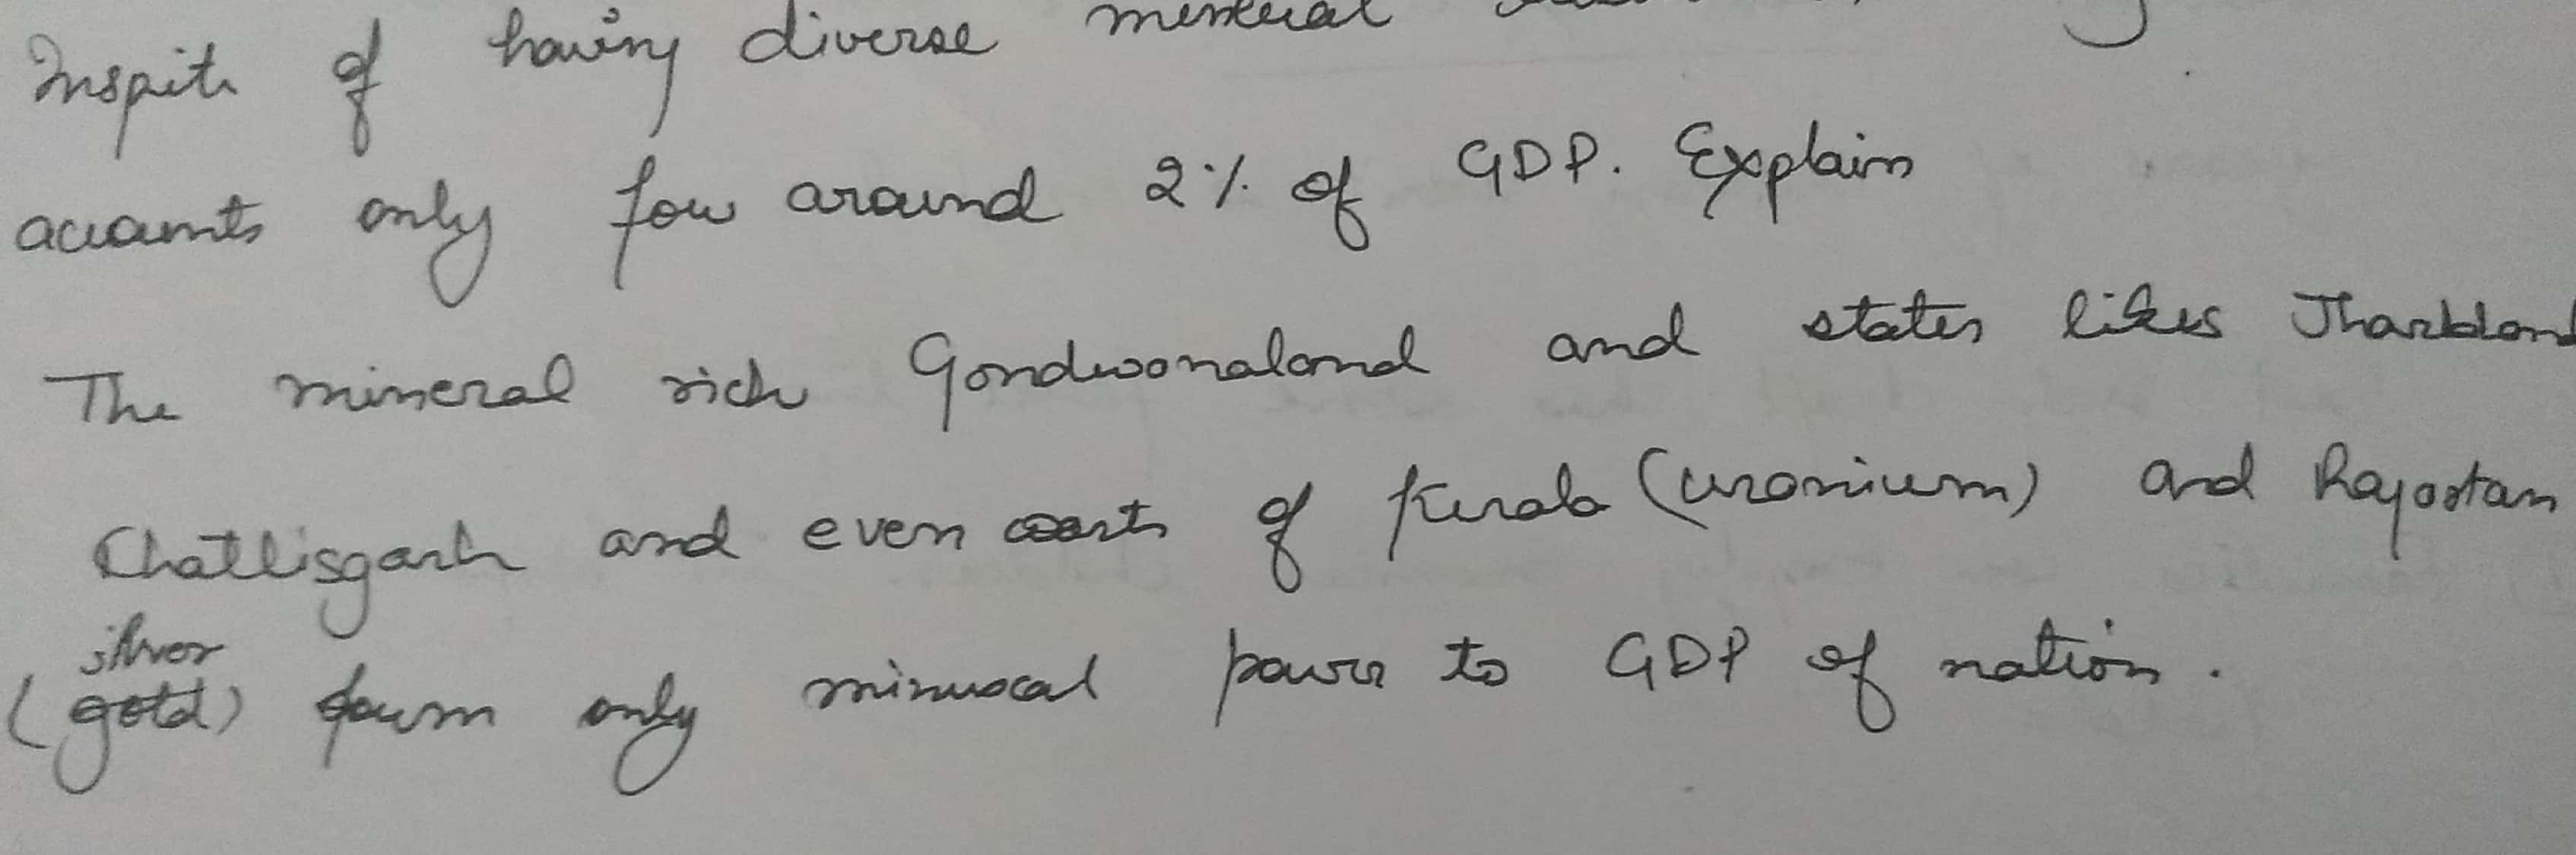 Inspite of having diverse mineral
accounts only for around 2% of GDP. Explain
The mineral rich Gondwanaland and states likes Jharkhand
Chattisgarh and even coasts of Kerala (uranium) and Rajastan
silver
(gold) form only minuscal power to GDP of nation.